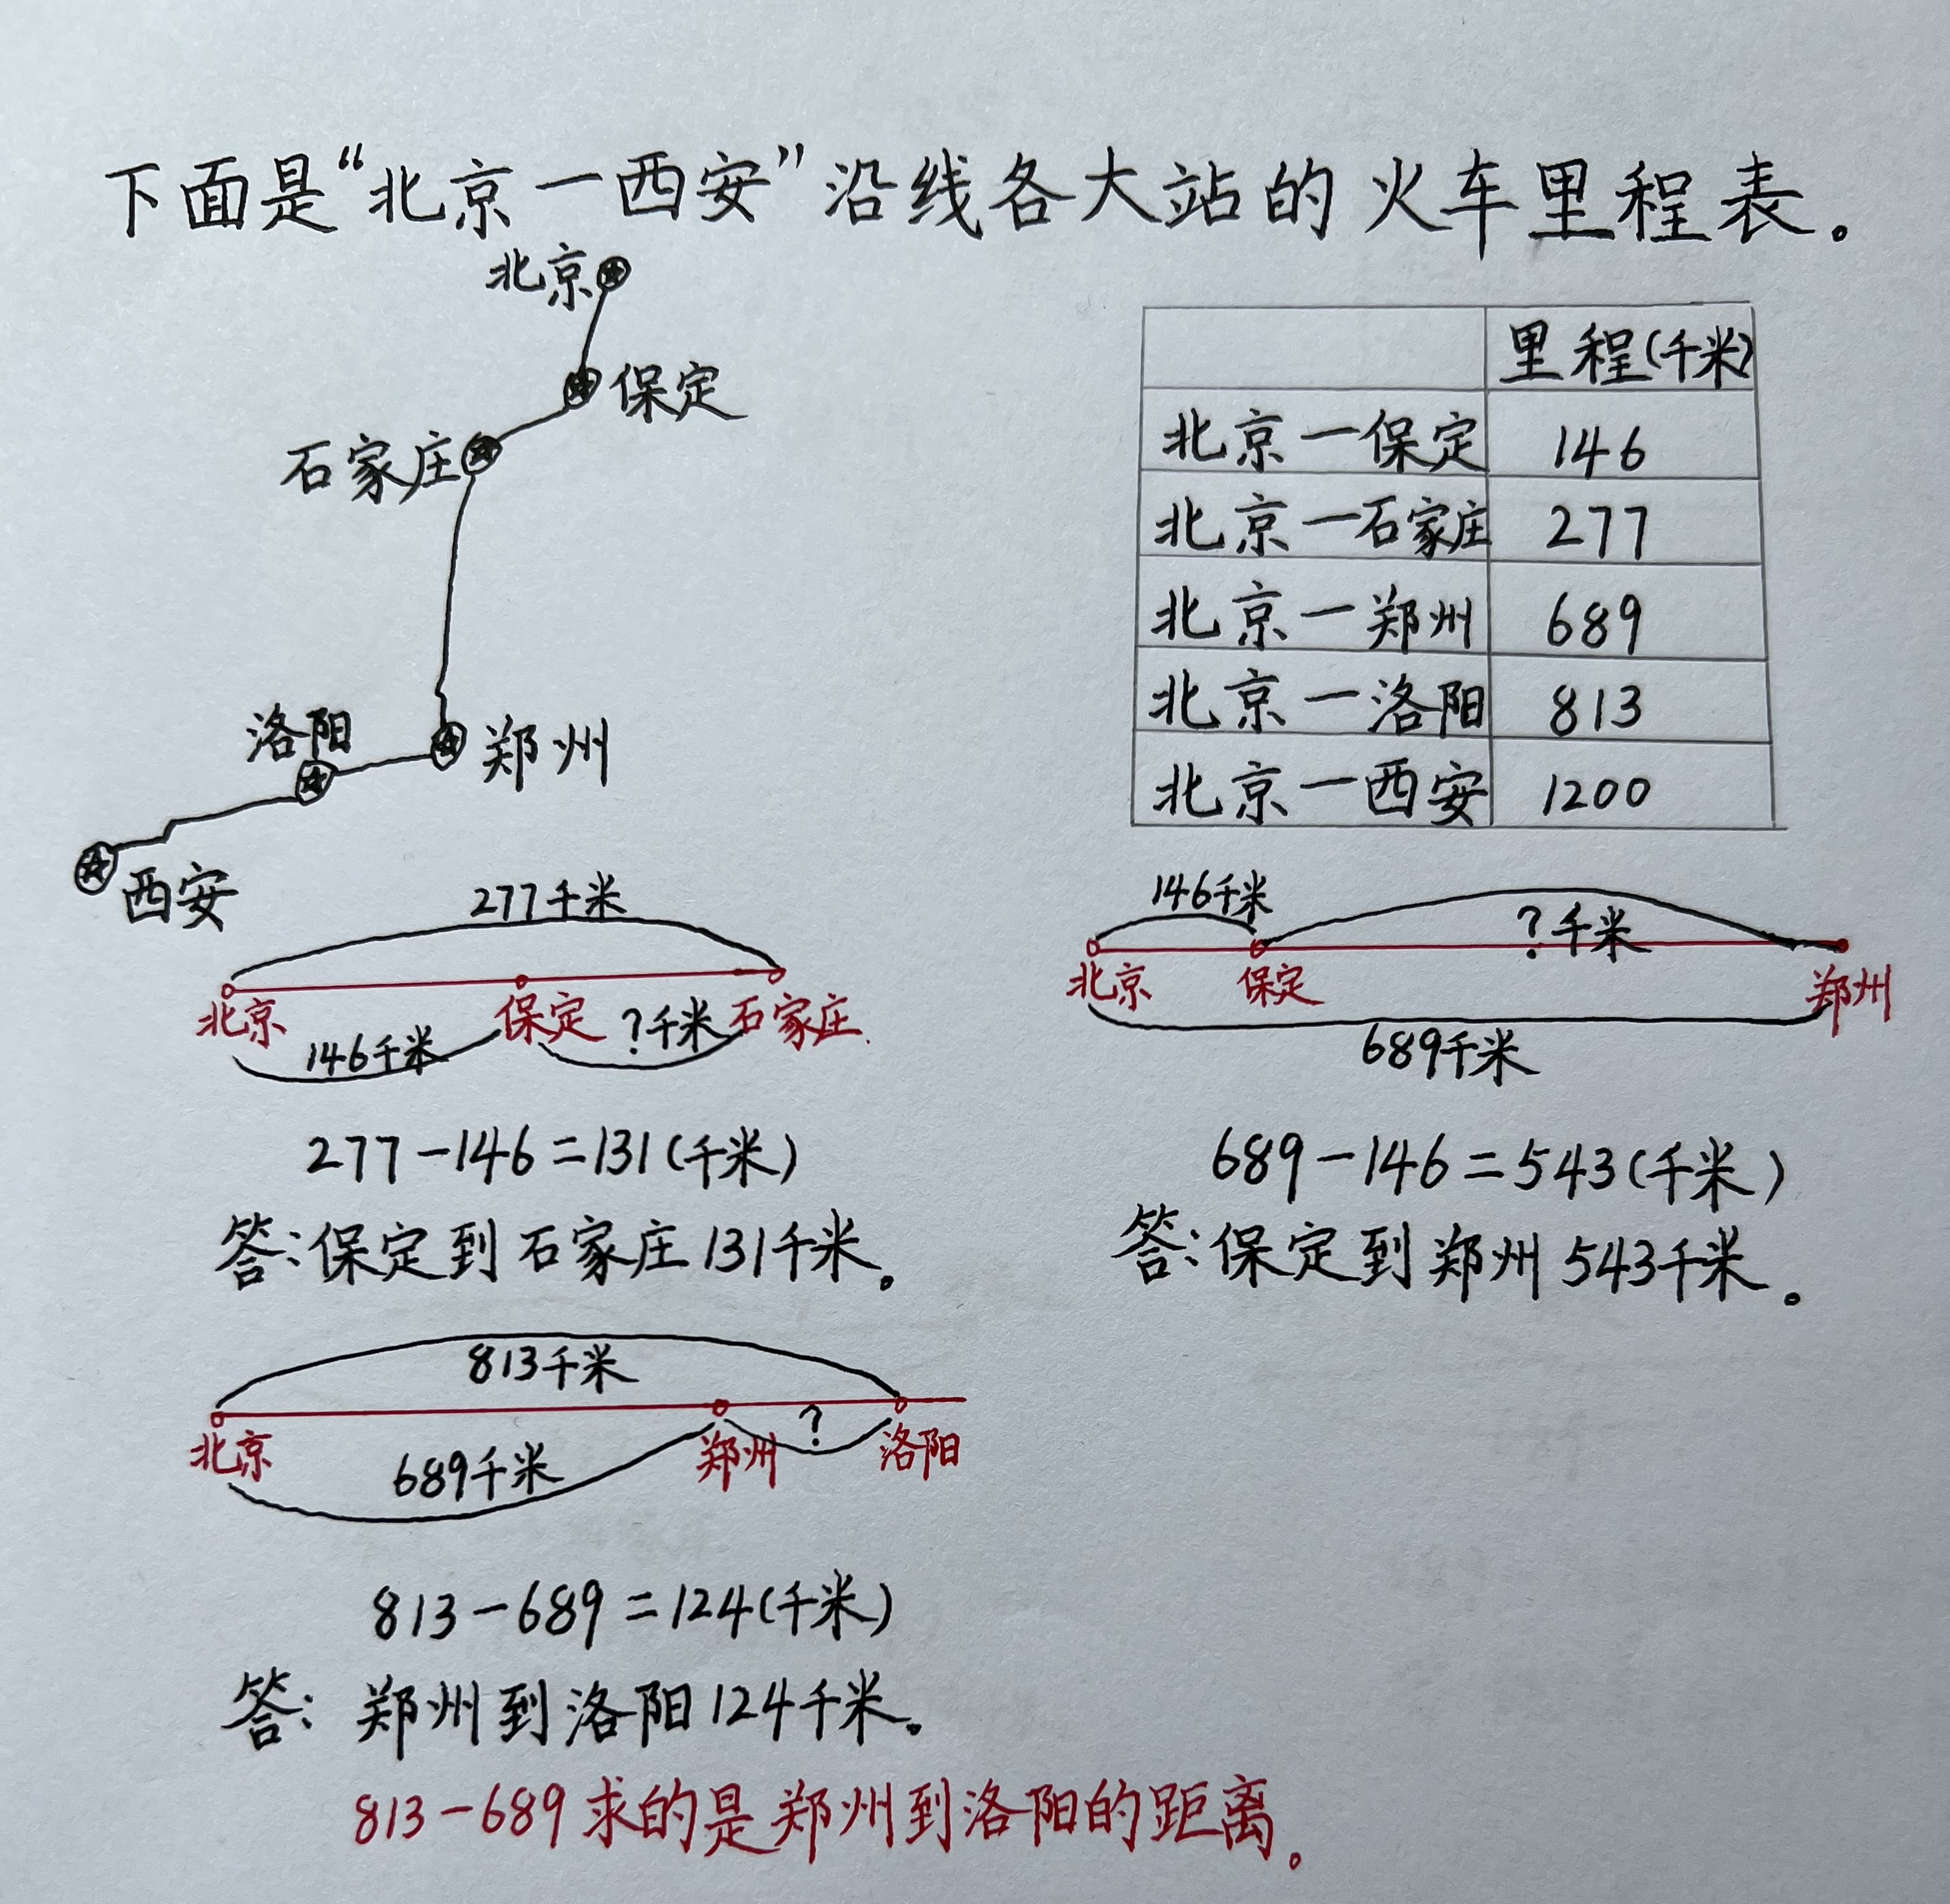 下面是“北京一西安”沿线各大站的火车里程表。
北京
保定
石家庄
洛阳
郑州
西安
里程(千米)
北京一保定 146
北京一石家庄 277
北京一郑州 689
北京一洛阳 813
北京一西安 1200
277千米
北京 保定 石家庄
146千米 ?千米
277-146=131(千米)
答:保定到石家庄131千米。
146千米 ?千米
北京 保定 郑州
689千米
689-146=543(千米)
答:保定到郑州543千米。
813千米
北京 郑州 ? 洛阳
689千米
813-689=124(千米)
答:郑州到洛阳124千米。
813-689求的是郑州到洛阳的距离。